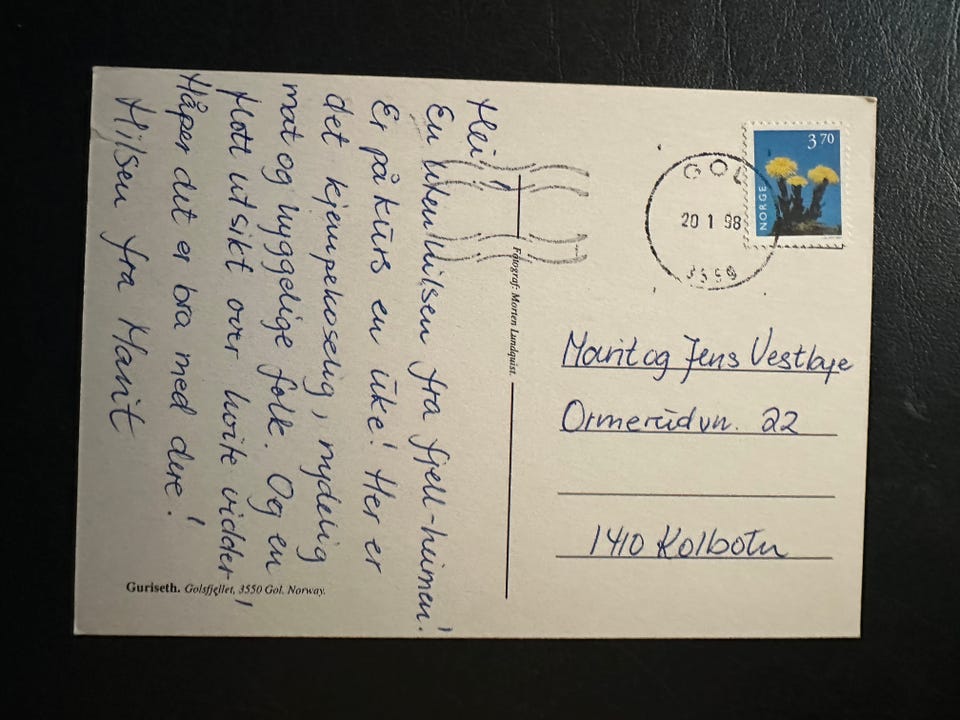 Hei!
En liten hilsen fra fjell-heimen!
Er på kurs en uke! Her er
det kjempekoselig, nydelig
mat og hyggelige folk. Og en
flott utsikt over hvite vidder!
Håper det er bra med dere!
Hilsen fra Marit
Guriseth. Golsfjellet, 3550 Gol. Norway.
Fotograf: Morten Lundquist.
GOL
20 1 98
3550
NORGE
3 70
Marit og Jens Vestbye
Ormerudvn. 22
1410 Kolbotn